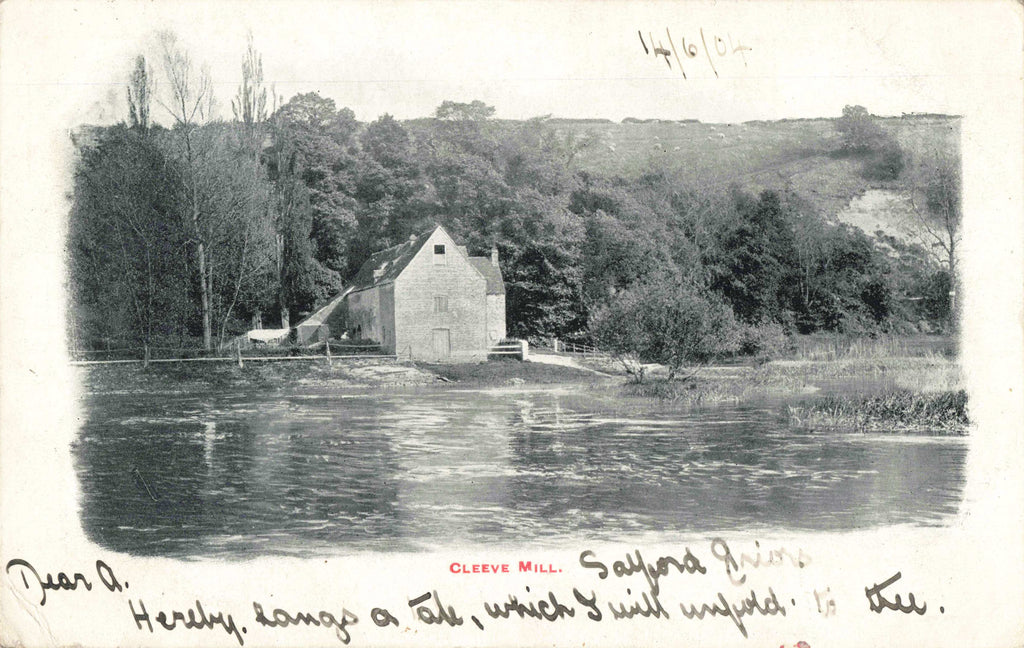 14/6/04
CLEEVE MILL. Salford Priors
Dear A.
Hereby, hangs a tale, which I will unfold to thee.